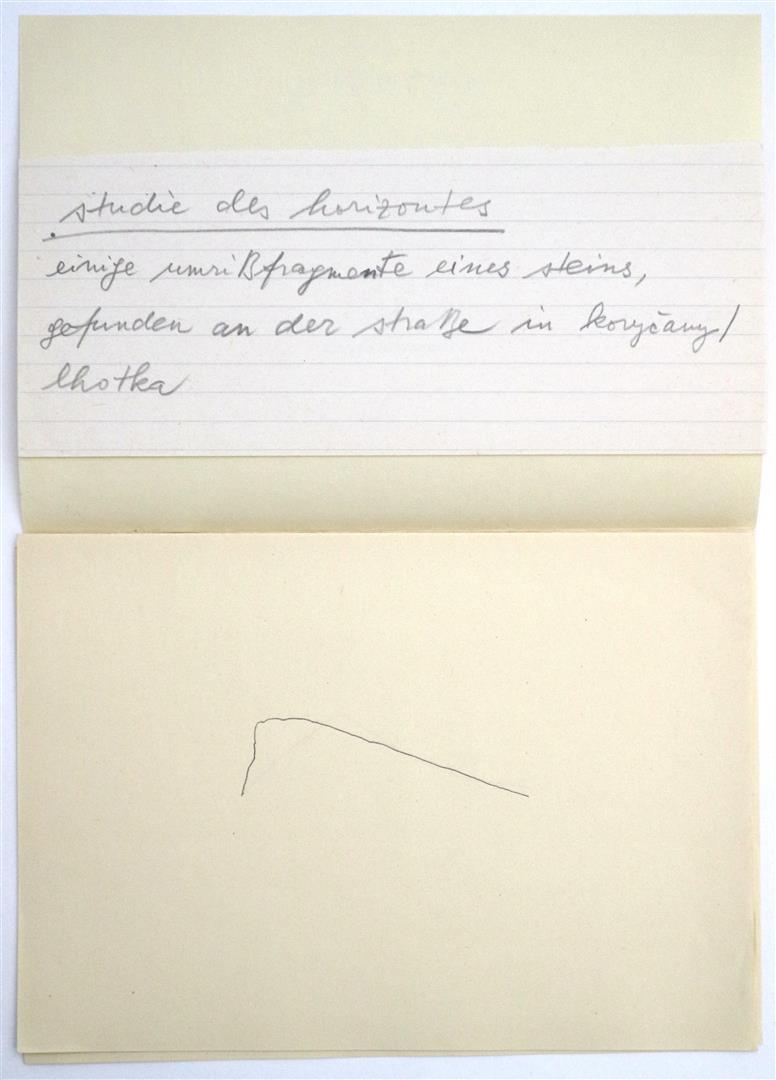 studie des horizontes
einige umrißfragmente eines steins,
gefunden an der straße in koryčany/
lhotka